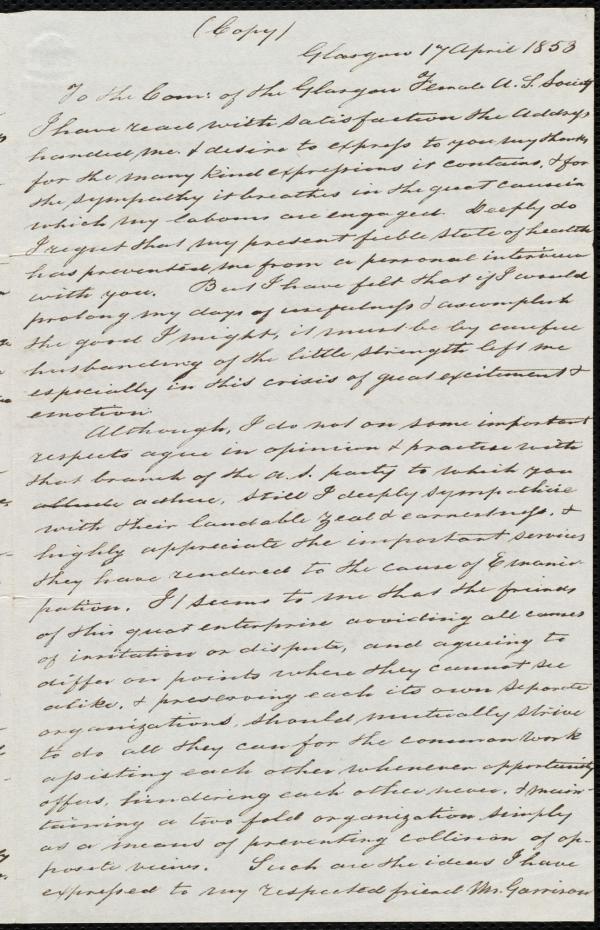 (Copy)
Glasgow 17 April 1853
To the Com: of the Glasgow Female A. S. Society
I have read with satisfaction the Address
handed me & desire to express to you my thanks
for the many kind expressions it contains, & for
the sympathy it breathes in the great cause in
which my labours are engaged. Deeply do
I regret that my present feeble state of health
has prevented me from a personal interview
with you. But I have felt that if I would
prolong my days of usefulness & accomplish
the good I might, it must be by careful
husbanding of the little strength left me
especially in this crisis of great excitement &
emotion.
Although, I do not on some important
respects agree in opinion & practise with
that branch of the a.s. party to which you
adhere, still I deeply sympathize
with their laudable zeal & earnestness, &
highly appreciate the important services
they have rendered to the cause of Emanci-
pation. It seems to me that the friends
of this great enterprise avoiding all causes
of irritation or dispute, and agreeing to
differ on points where they cannot see
alike, & preserving each its own separate
organizations, should mutually strive
to do all they can for the common work
assisting each other whenever opportunity
offers, hindering each other never, & main-
taining a two fold organization simply
as a means of preventing collision of op-
posite views. Such are the ideas I have
expressed to my respected friend Mr. Garrison